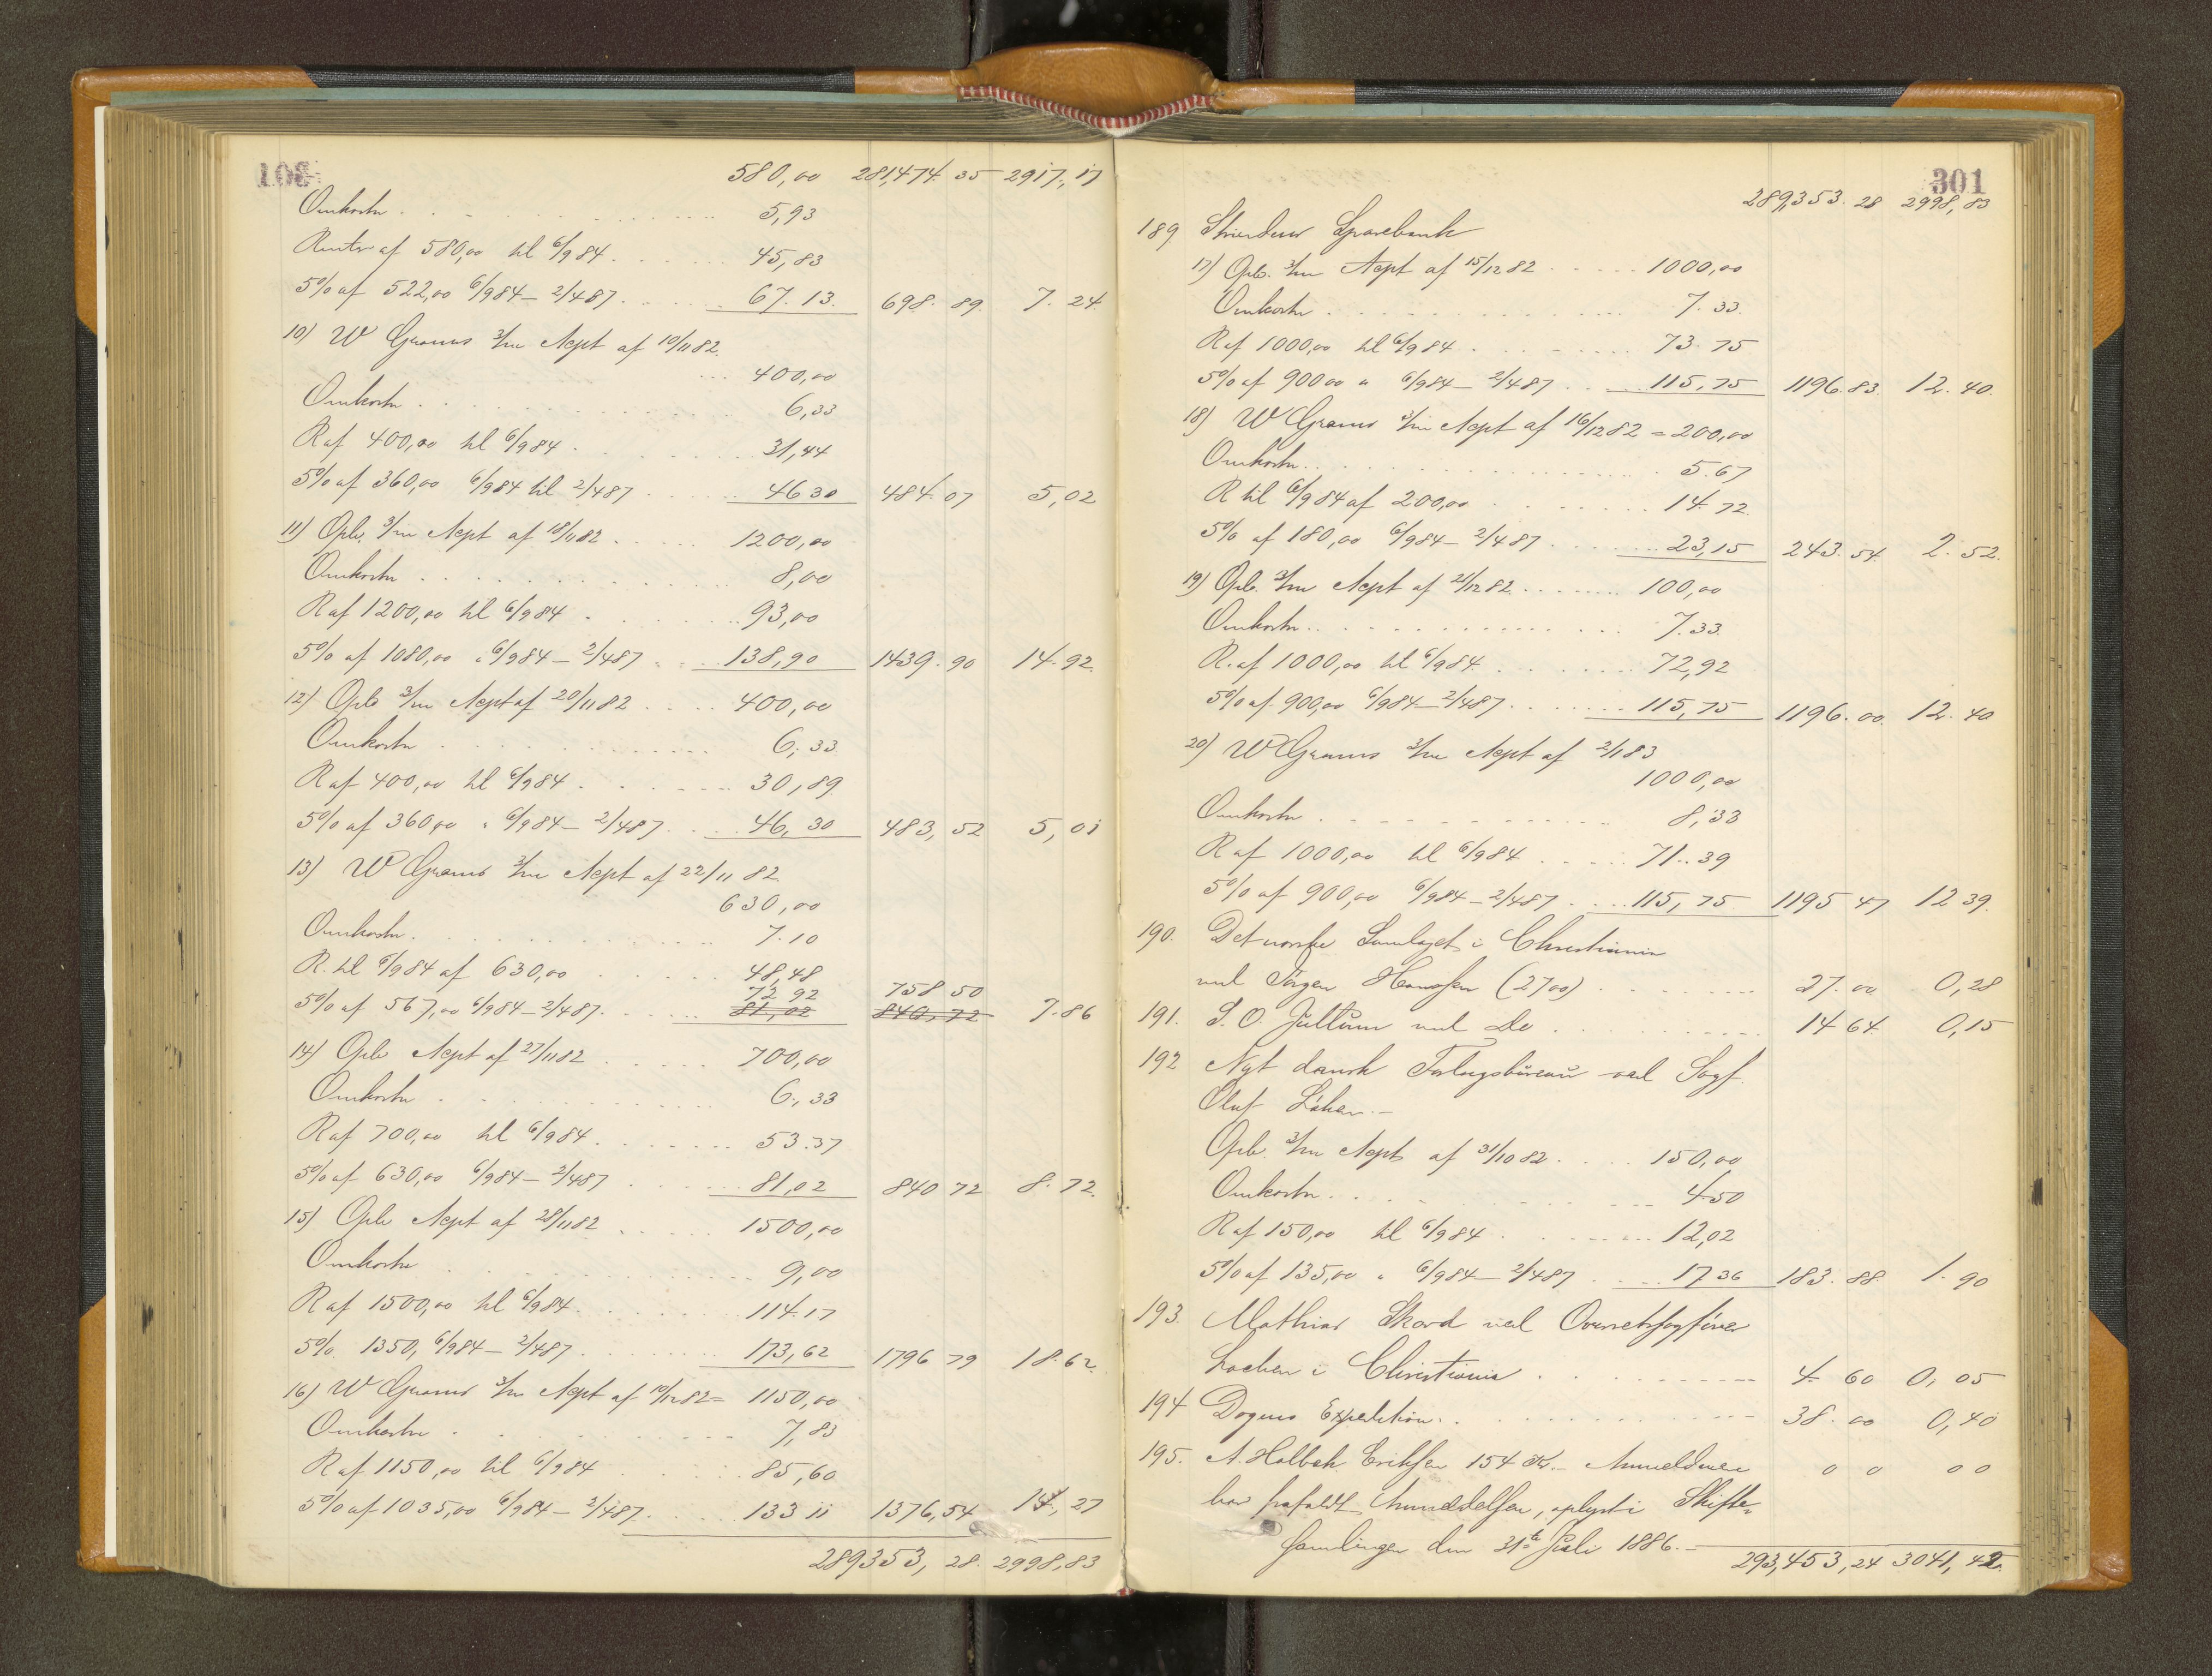 108
580,00 281,474. 35 2917,,17
Omkostn. 5,93
Renter af 580,00 til 6/9 84 45,83
5% af 522,00 6/9 84 – 2/4 87 67.13. 698. 89. 7. 24
10) W Grams 3/m Acpt af 10/11 82.
400,00
Omkostn 6,33
R af 400,00 til 6/9 84 31,44
5% af 360,00 6/9 84 til 2/4 87 46 30 484. 07 5,02
11) Opb. 3/m Acpt af 18/11 82 1200,00
Omkostn 8,00
R af 1200,00 til 6/9 84 93,00
5% af 1080,00 " 6/9 84 – 2/4 87 138,90 1439. 90 14. 92.
12) Opb 3/m Acpt af 20/11 82 400,00
Omkostn 6,33
R af 400,00 til 6/9 84 30,89
5% af 360,00 " 6/9 84 – 2/4 87 46,30 483, 52 5,01
13) W Grams 3/m Acpt af 22/11 82.
630,00
Omkostn. 7.10
R. til 6/9 84 af 630,00 48,48
72 92 758 50
5% af 567,00 6/9 84 – 2/4 87. 81,02 840,72 7.86
14) Opb Acpt af 27/11 82 700,00
Omkostn 6,,33
R af 700,00 til 6/9 84 53.37
5% af 630,00 6/9 84 – 2/4 87 81,02 840 72 8.72.
15) Opb Acpt af 28/11 82 1500,00
Omkostn 9,00
R af 1500,00 til 6/9 84 114.17
5% 1350, 6/9 84 – 2/4 87 173,62 1796 79 18.62
16) W Grams 3/m Acpt af 10/12 82 = 1150,00
Omkostn 7,83
R af 1150,00 til 6/9 84 85,60
5% af 1035,00 6/9 84 – 2/4 87. 133 11 1376,54 14,27
289353, 28. 2998,83
301
289,353. 28 2998,83
189 Sparebank
17) Opb. 3/m Acpt af 15/12 82 1000,00
Omkostn 7.33.
R af 1000,00 til 6/9 84 73.75
5% af 900 00 " 6/9 84 – 2/4 87 115,75 1196.83. 12. 40.
18) W Grams 3/m Acpt af 16/12 82 = 200,00
Omkostn. 5.67
R til 6/9 84 af 200,00 14.72
5% af 180,00 6/9 84 – 2/4 87 23,15 243.54. 2. 52.
19) Opb. 3/m Acpt af 21/12 82 100,00
Omkostn. 7.33.
R. af 1000,00 til 6/9 84. 72,92
5% af 900,00 6/9 84 – 2/4 87 115,75 1196. 00. 12. 40
20) W Grams 3/m Acpt af 2/1 83
1000,00
Omkostn 8,33
R af 1000,00 til 6/9 84 71..39
5% af 900,00 6/9 84 – 2/4 87 115,75 1195 47 12 39.
190. Det norske Samlaget i Christiania
ved Jörgen Hansen (27 00) 27. 00 0,28
191. S. O. ved Do 14 64. 0,15
192 Nyt dansk Forlagsbüreau ved Sagf.
Oluf
Opb. 3/m Acpt af 31/10 82 150,00
Omkostn. 4.50
R af 150,00 til 6/9 84 12,02
5% af 135,00 " 6/9 84 – 2/4 87 17 36 183. 88. 1. 90
193. Mathias Skard ved Overretssagförer
i Christiania 4. 60 0,05
194 Dagens Expedition. 38. 00 0,40
195. A. Holbek Eriksen 154 Kr. – Anmelderen 0 0 0 0
har frafaldt Anmeldelsen, oplyst i Skifte-
samlingen den 31te Juli 1886. –
293,453,24 3041,42.